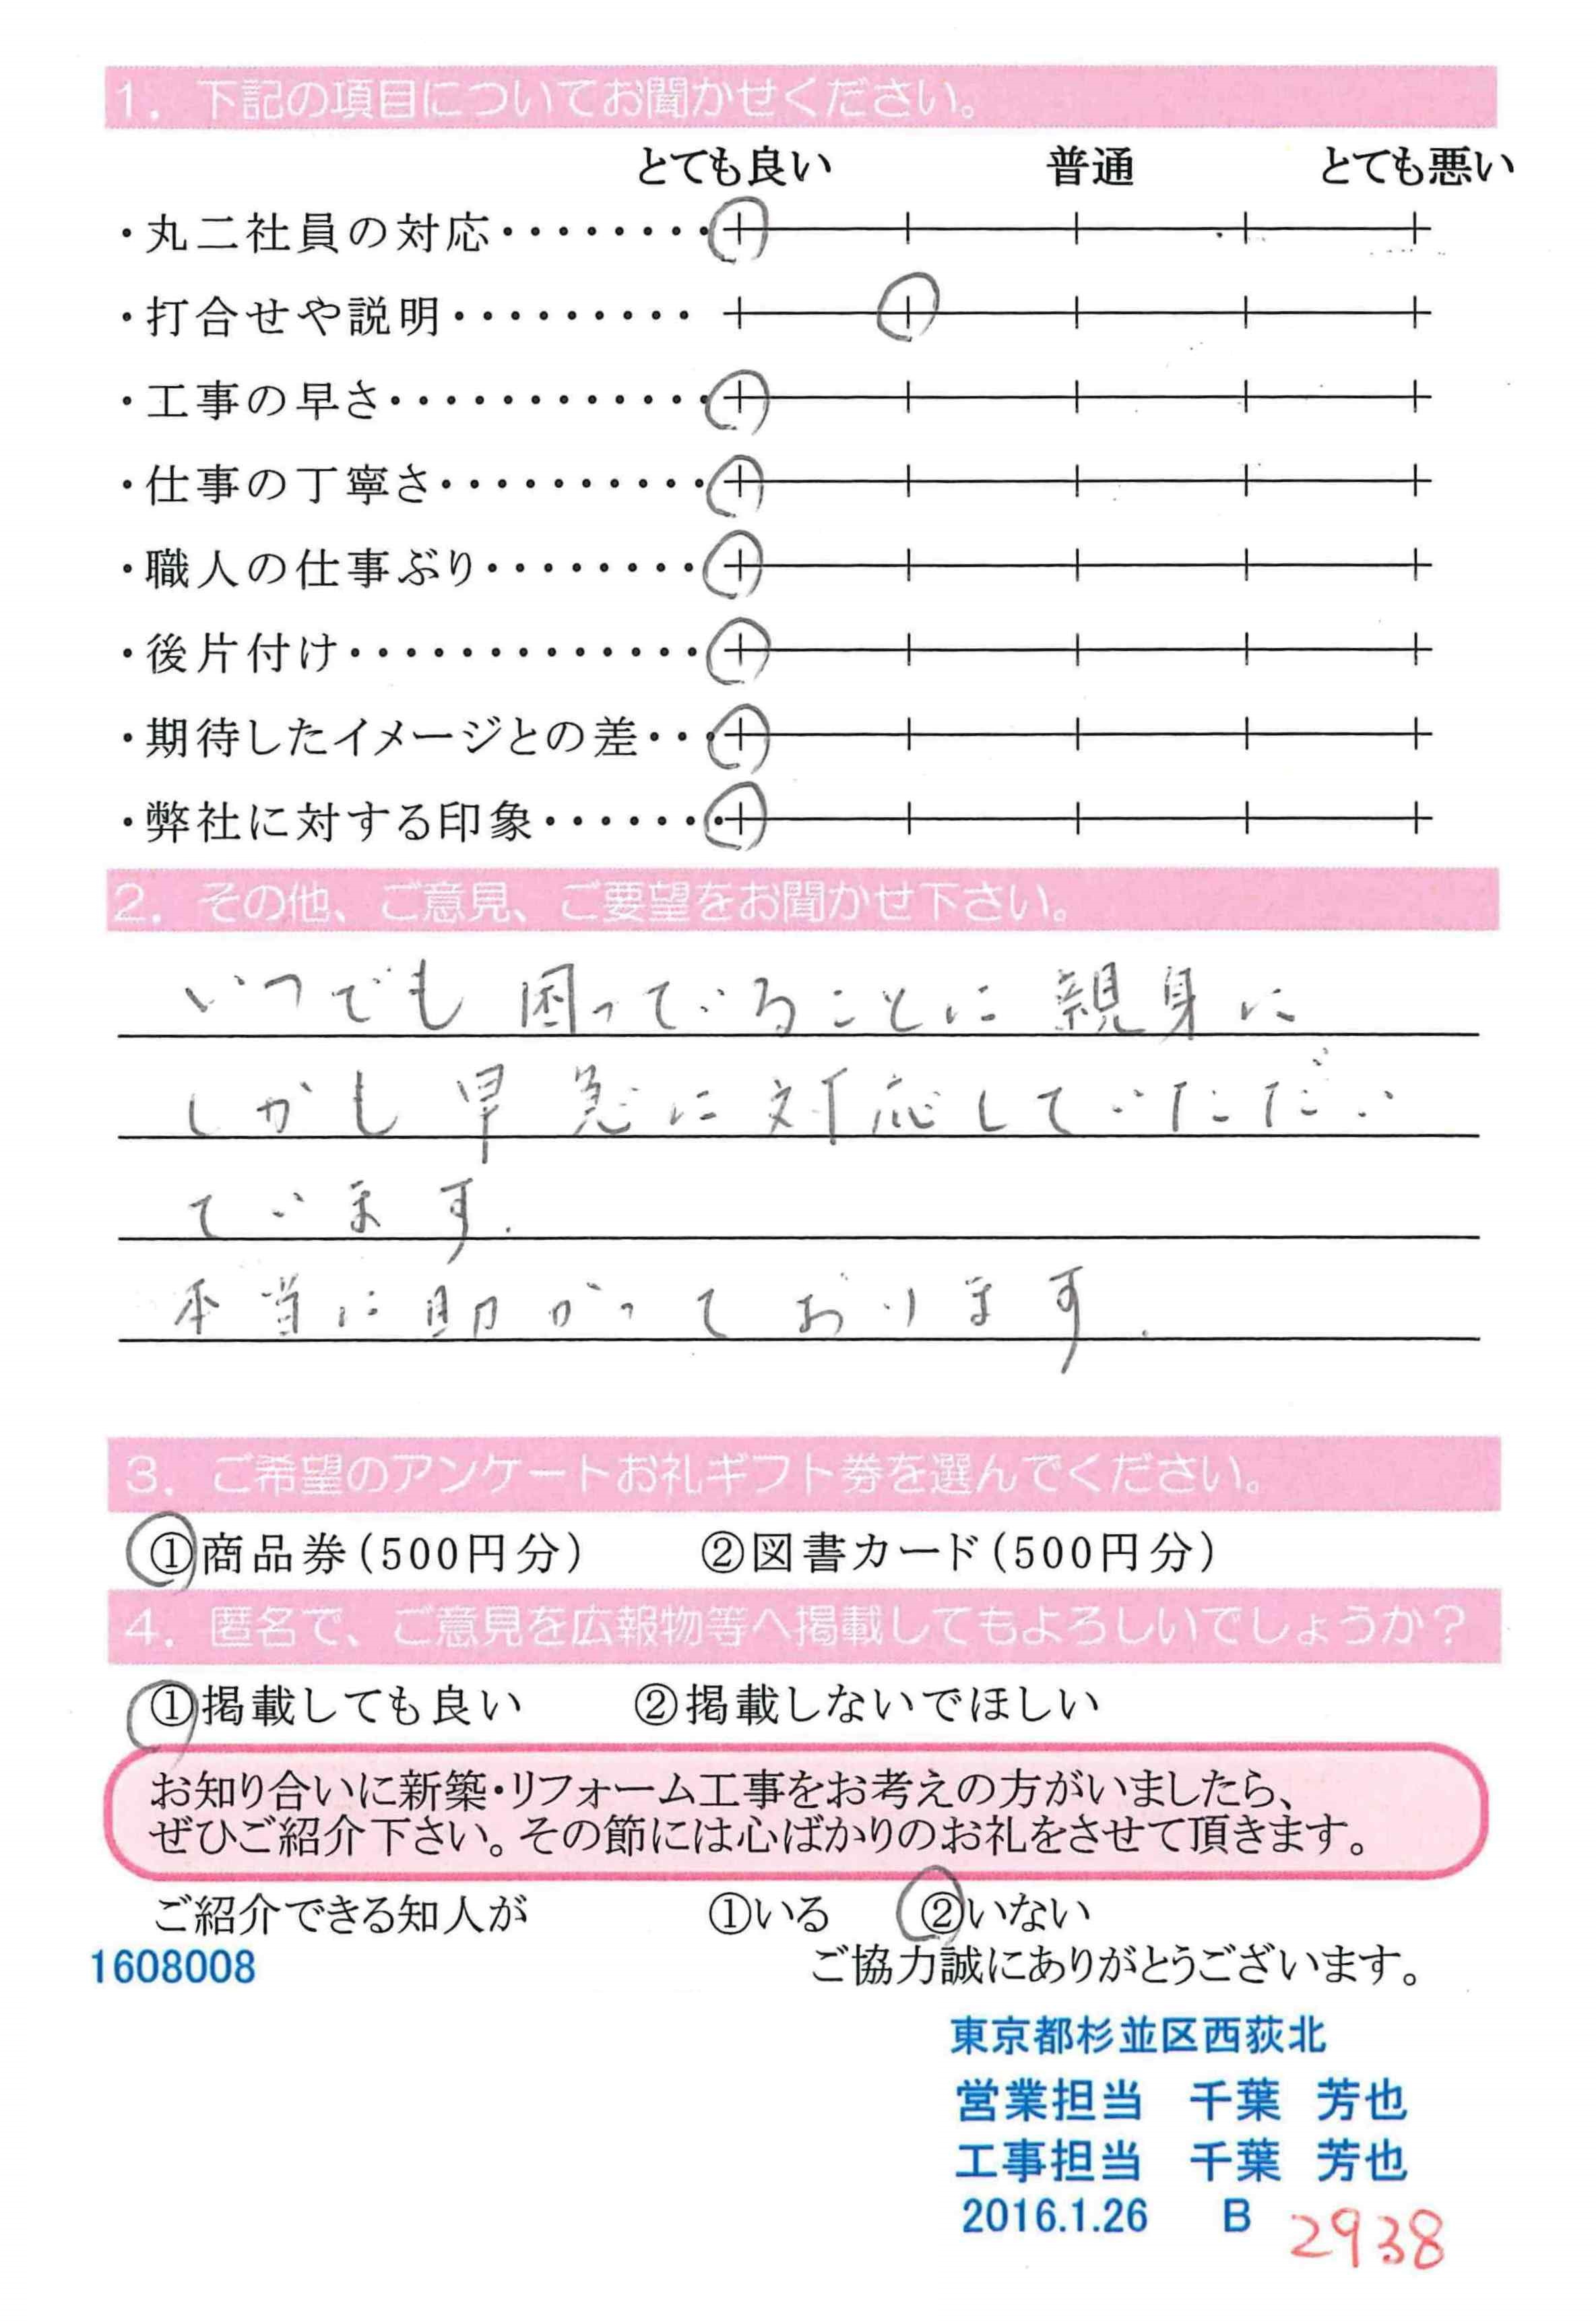 1. 下記の項目についてお聞かせください。
とても良い 普通 とても悪い
・丸二社員の対応・・・・・・・・
・打合せや説明・・・・・・・・・
・工事の早さ・・・・・・・・・・・・
・仕事の丁寧さ・・・・・・・・・・
・職人の仕事ぶり・・・・・・・・
・後片付け・・・・・・・・・・・・・
・期待したイメージとの差・・・
・弊社に対する印象・・・・・・・
2. その他、ご意見、ご要望をお聞かせ下さい。
いつでも困っていることに親身に
しかも早急に対応していただい
ています.
本当に助かっております.
3. ご希望のアンケートお礼ギフト券を選んでください。
①商品券(500円分) ②図書カード(500円分)
4. 匿名で、ご意見を広報物等へ掲載してもよろしいでしょうか?
①掲載しても良い ②掲載しないでほしい
お知り合いに新築・リフォーム工事をお考えの方がいましたら、
ぜひご紹介下さい。その節には心ばかりのお礼をさせて頂きます。
ご紹介できる知人が ①いる ②いない
1608008 ご協力誠にありがとうございます。
東京都杉並区西荻北
営業担当 千葉 芳也
工事担当 千葉 芳也
2016.1.26 B 2938